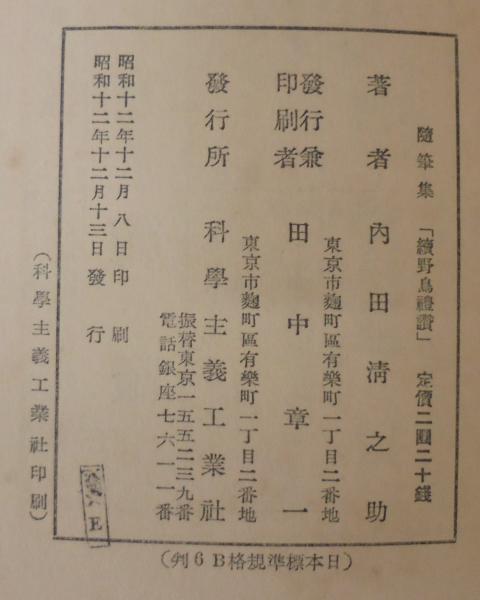 隨筆集 「續野鳥禮讃」 定價二圓二十錢
著者 內田淸之助
東京市麴町區有樂町一丁目二番地
發行兼
印刷者 田中章一
東京市麴町區有樂町一丁目二番地
發行所 科學主義工業社
振替東京一五五二三九番
電話銀座七六一一番
昭和十二年十二月八日印刷
昭和十二年十二月十三日發行
(科學主義工業社印刷)
(日本標準規格B6判)
E